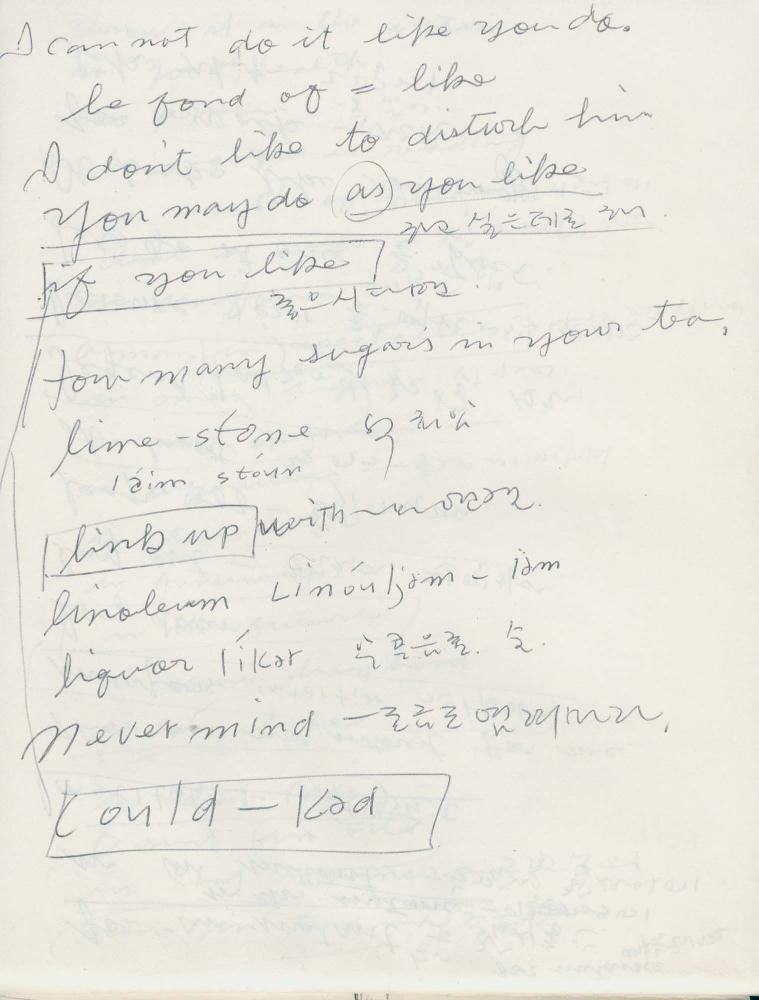 I can not do it like you do.
be fond of = like
I don't like to disturb him
You may do as you like
하고 싶은데로 하다.
if you like
좋으시다면.
How many sugars in your tea,
lime-stone 석회암
láim stóun
link up with
linoleum Linóuljəm - iəm
liquor líkər 알콜음료. 술.
Never mind -
could - Kəd